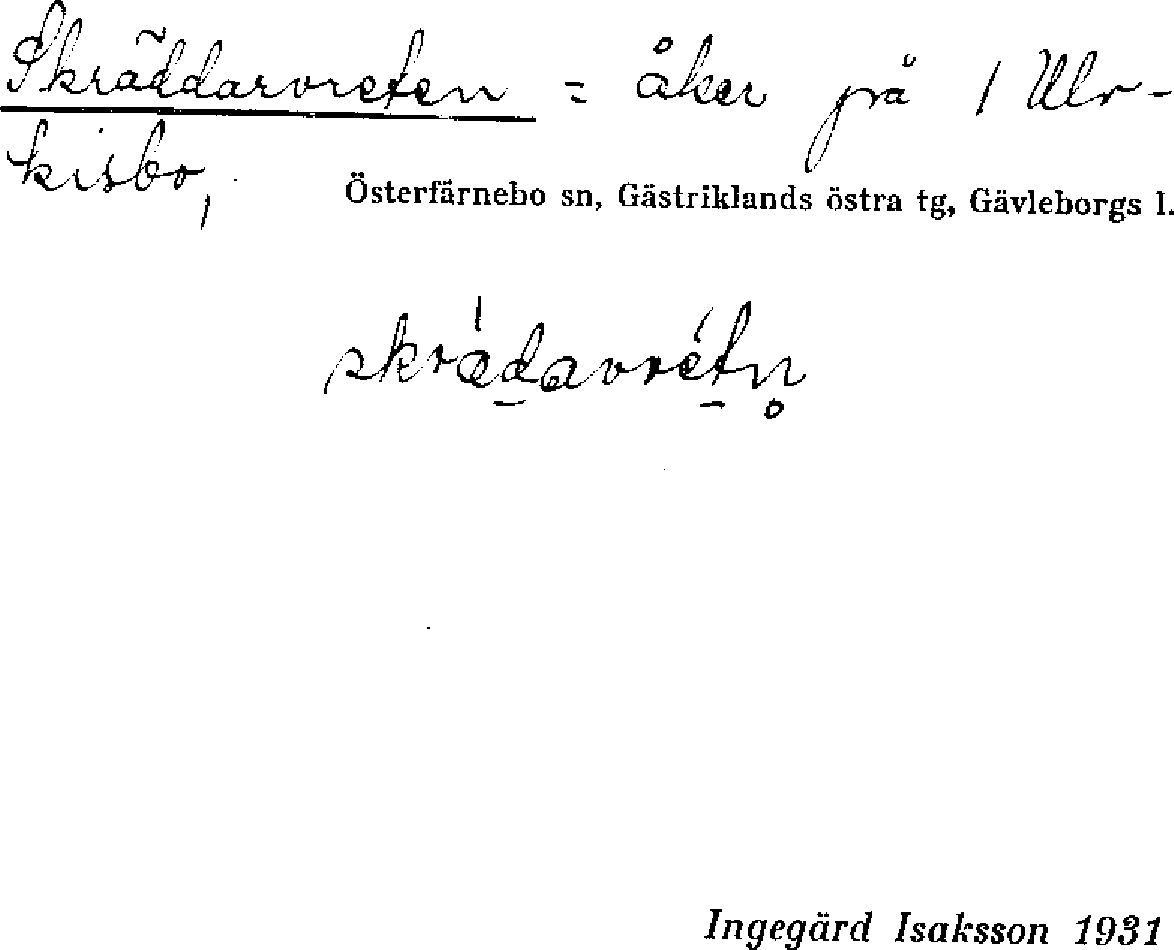 Skräddarvreten = åker på 1 Ulr-
kisbo,
Österfärnebo sn, Gästriklands östra tg, Gävleborgs l.
skrä̀davrétn̥
Ingegärd Isaksson 1931